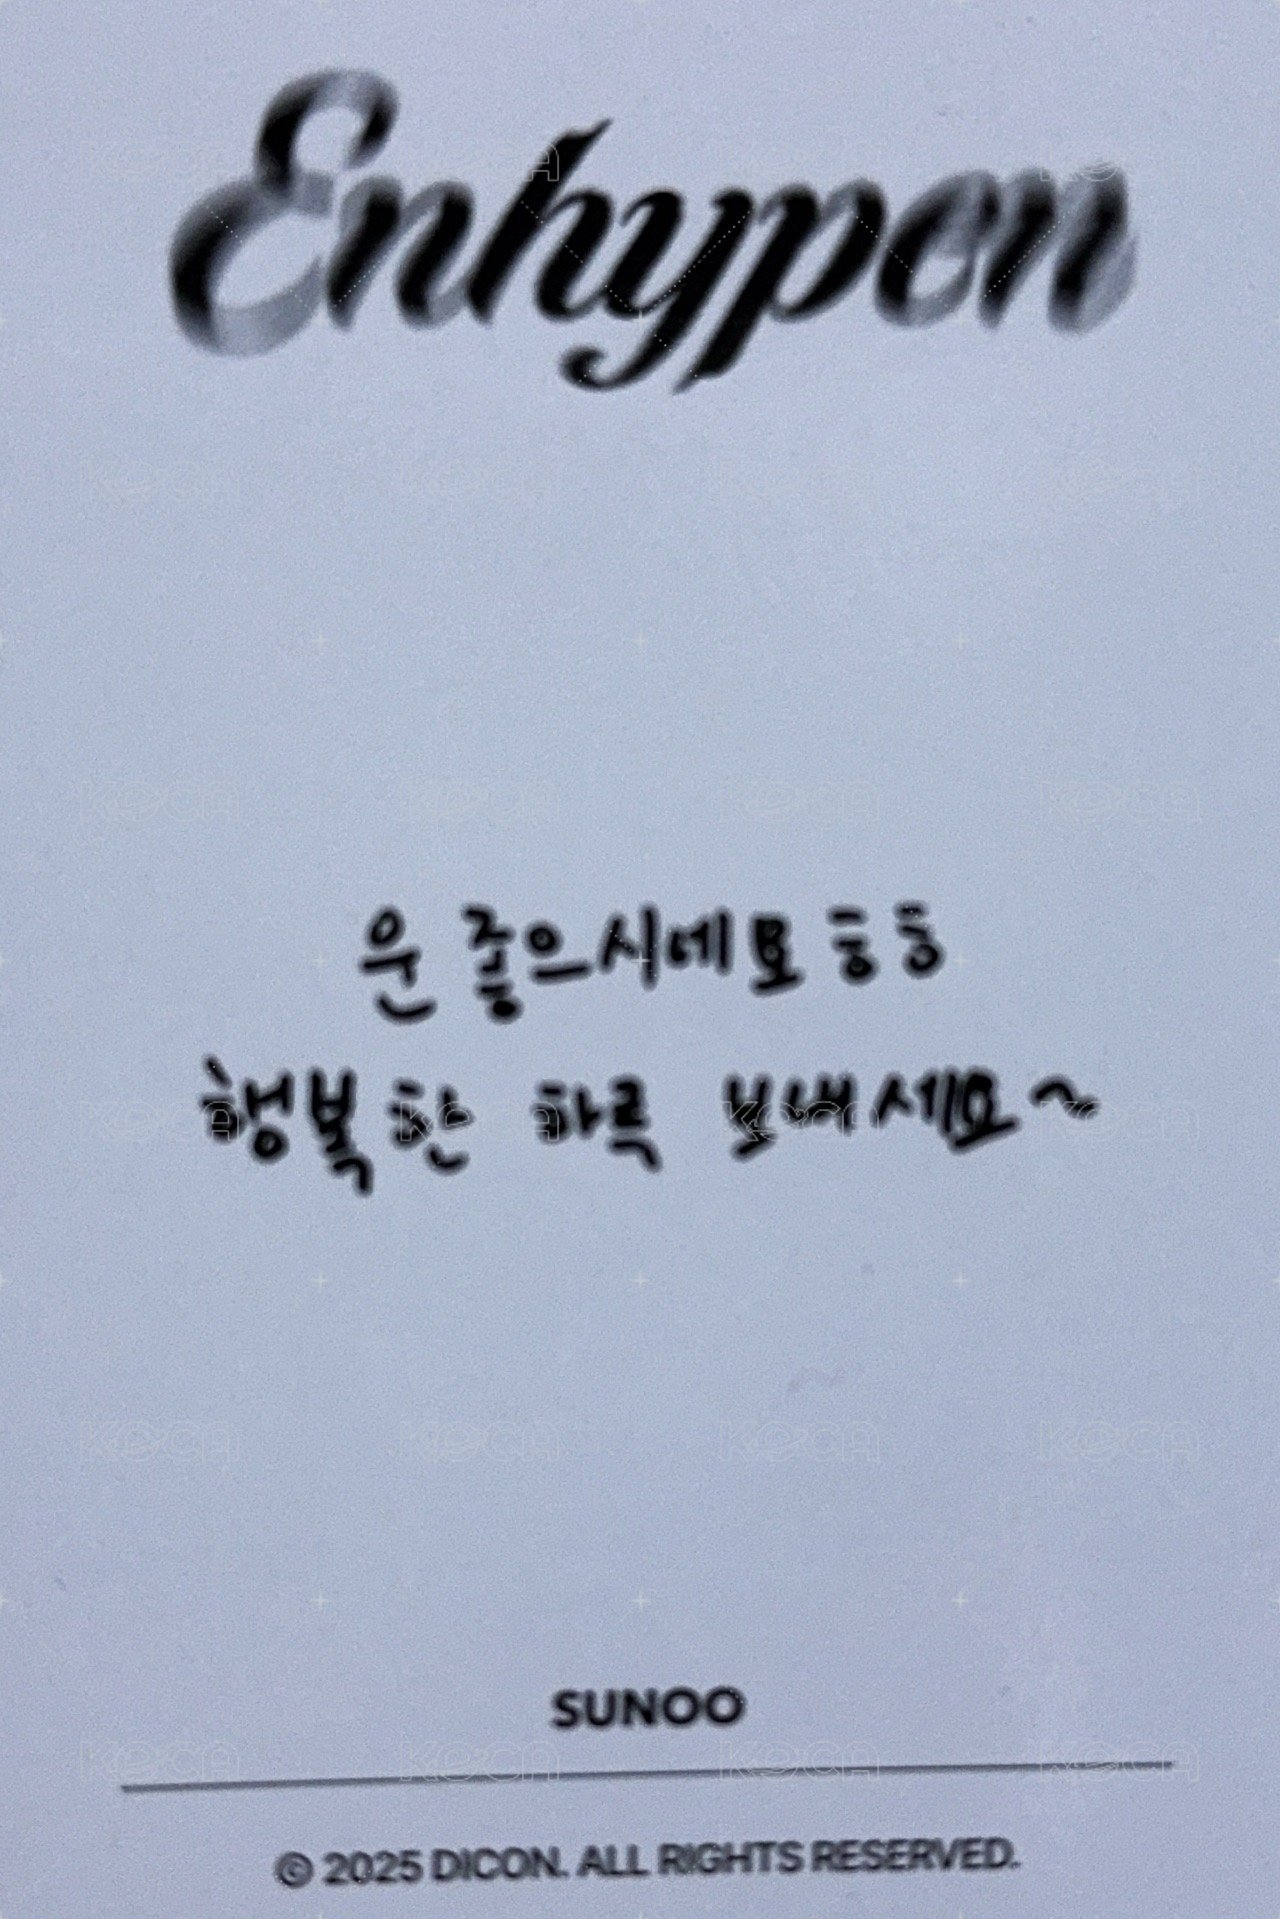 Enhypen
운 좋으시네요 ㅎㅎ
행복한 하루 보내세요~
SUNOO
© 2025 DICON. ALL RIGHTS RESERVED.
KOCA